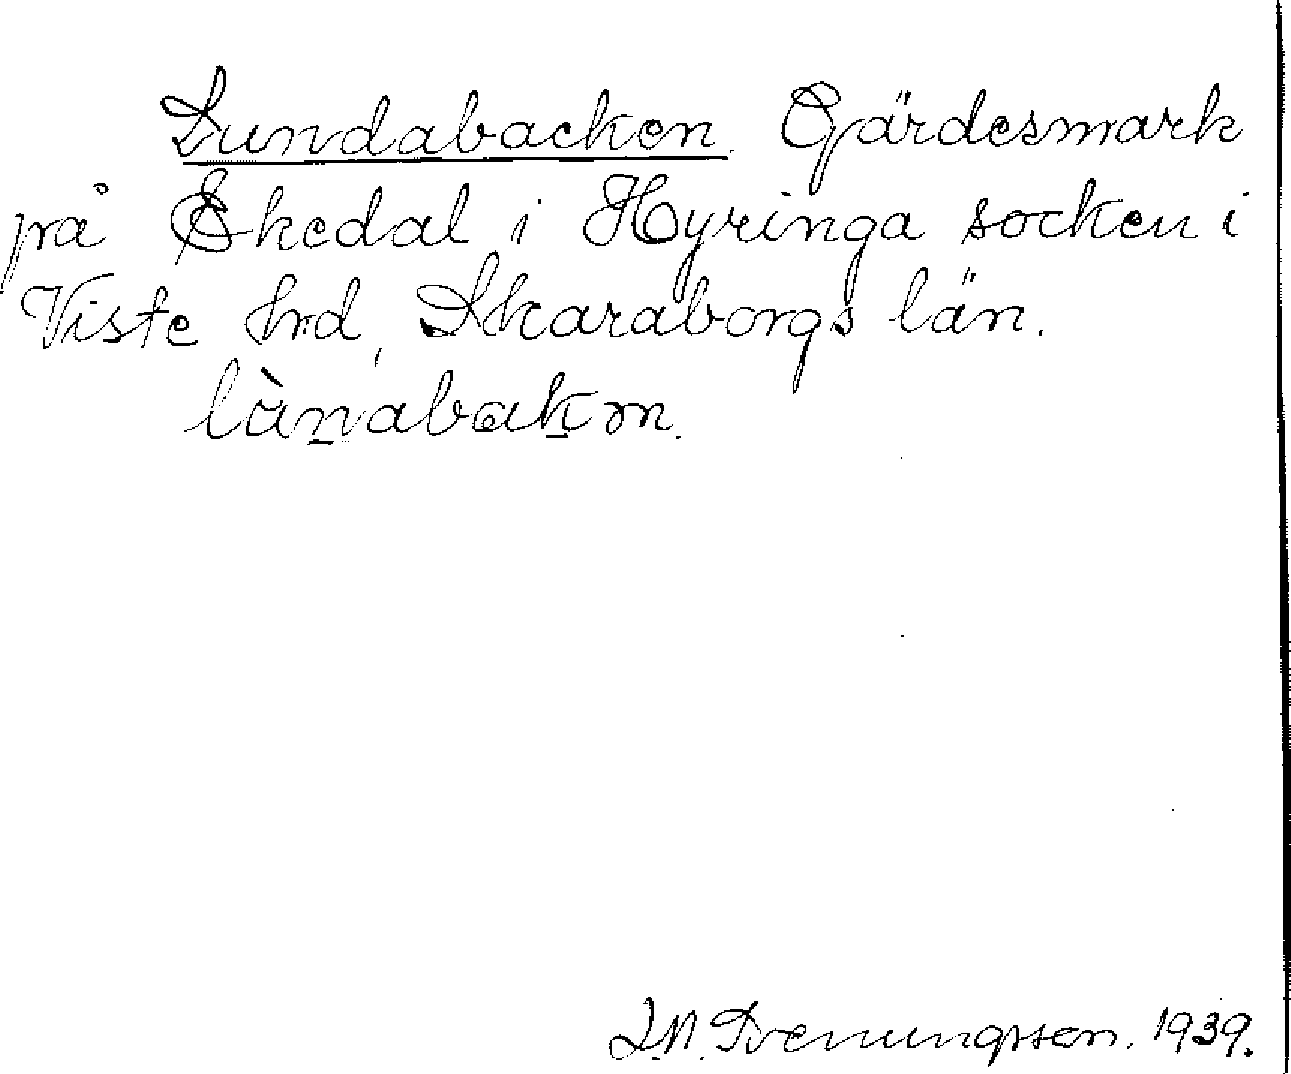 Lundabacken. Gärdesmark
på Ekedal i Hyringa socken i
Viste hrd, Skaraborgs län.
lànabakm.
1939.